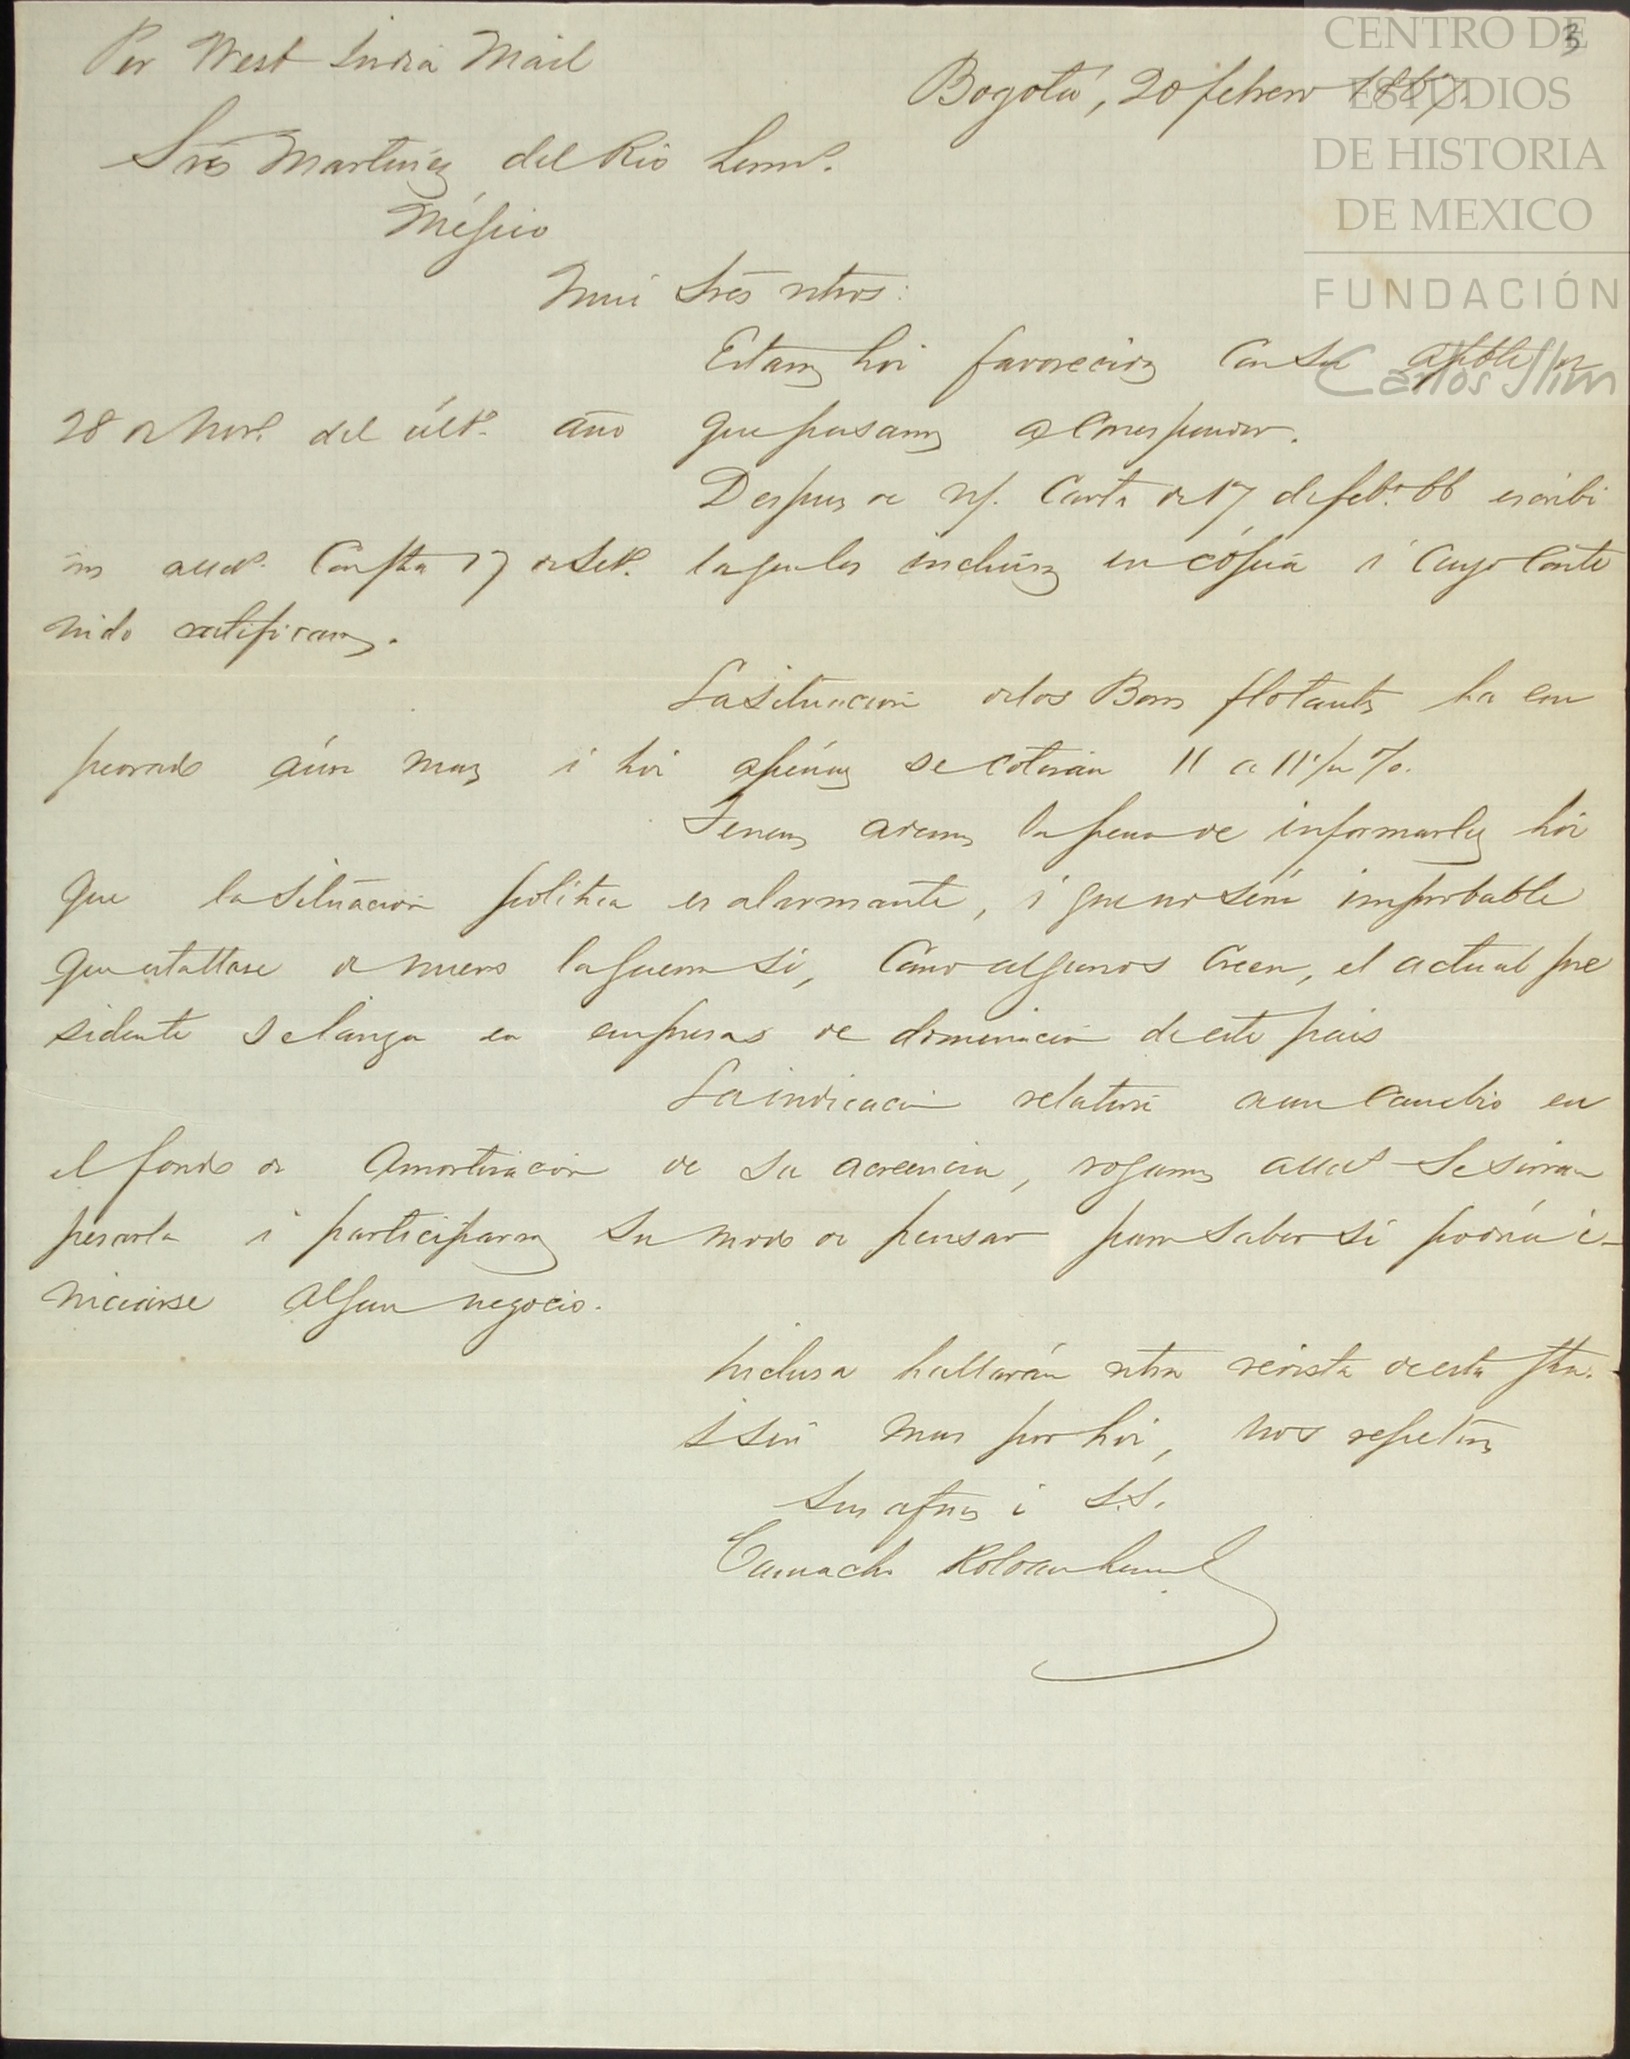 Per West India Mail
3
Bogotá, 20 febrero 1867.
Sres Martinez del Rio herms.
Méjico
Mui Sres ntros:
Estams hoi favorecidos con su apble de
28 de Nove. del últo. año que pasams a corresponder.
Despues de n/. Carta de 17 de febo. 66 escribi
ms a Uds. Con fha 17 de Sete. la que les incluims en cópia i Cuyo Conte
nido ratificams.
La situacion de los Bonos flotantes ha em
peorado aún mas i hoi apénas se cotizan 11 a 11 1/2 %.
Tenems ademas la pena de informarles hoi
que la situacion política es alarmante, i que no sería improbable
que estallase de nuevo la guerra si, Como algunos Creen, el actual pre
sidente se lanza en empresas de dominacion de este pais
La indicacion relativa a un Cambio en
el fondo de Amortizacion de su acreencia, rogams a Uds se sirvan
pesarla i participarns su modo de pensar para saber si podría i-
niciarse algun negocio.
Inclusa hallarán ntra revista de esta fha.
I sin mas por hoi, nos repetims
Sus afmos i S.S.
Camacho Roldan herms
CENTRO DE
ESTUDIOS
DE HISTORIA
DE MEXICO
FUNDACIÓN
Carlos Slim